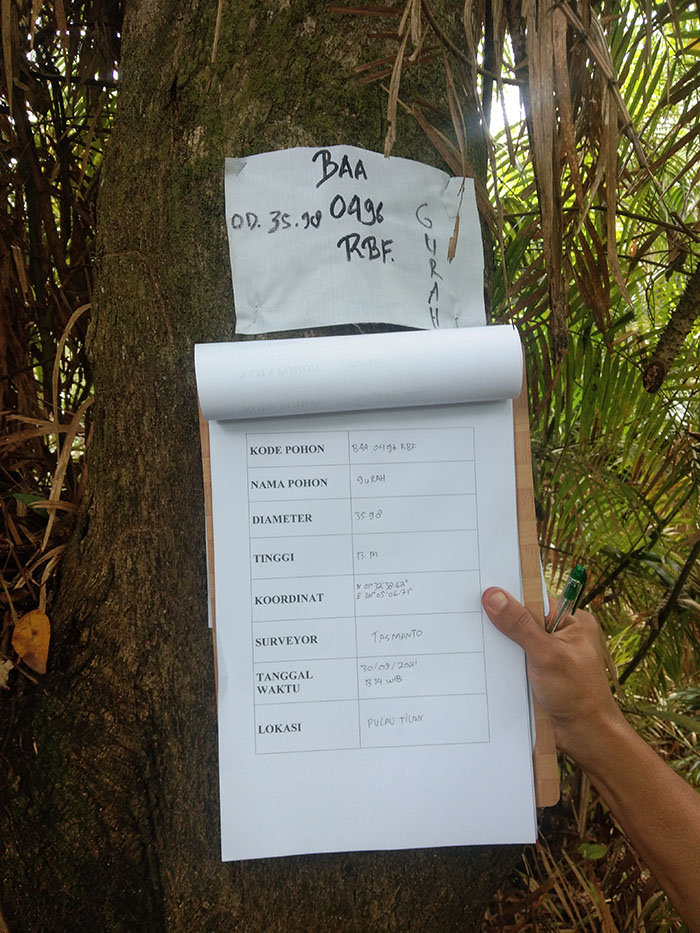 BAA
OD. 35.98 0496
RBF.
GURAH
KODE POHON BAA 0496 RBF
NAMA POHON GURAH
DIAMETER 35.98
TINGGI 13 M
KOORDINAT N 01°32'38.62"
SURVEYOR TASMANTO
TANGGAL WAKTU 30/09/2021
1314 WIB
LOKASI PULAU TILAN